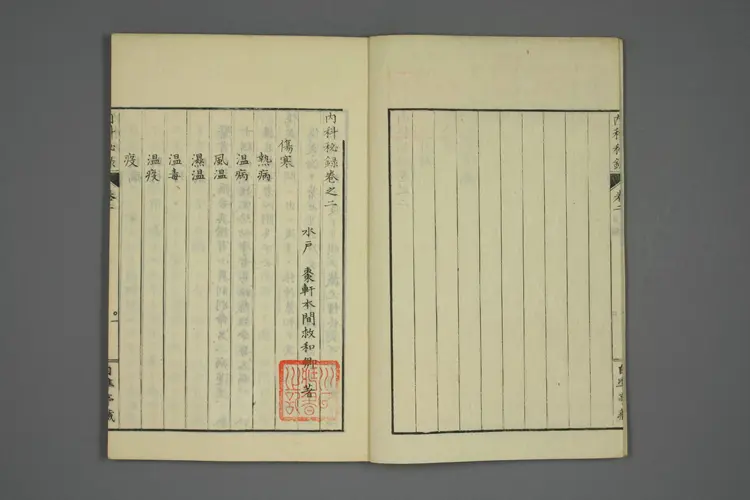 内科秘録
卷二
内科秘録卷之二
水戸 棗軒本間救和卿著
傷寒
熱病
温病
風温
濕温
温毒
温疫
疫